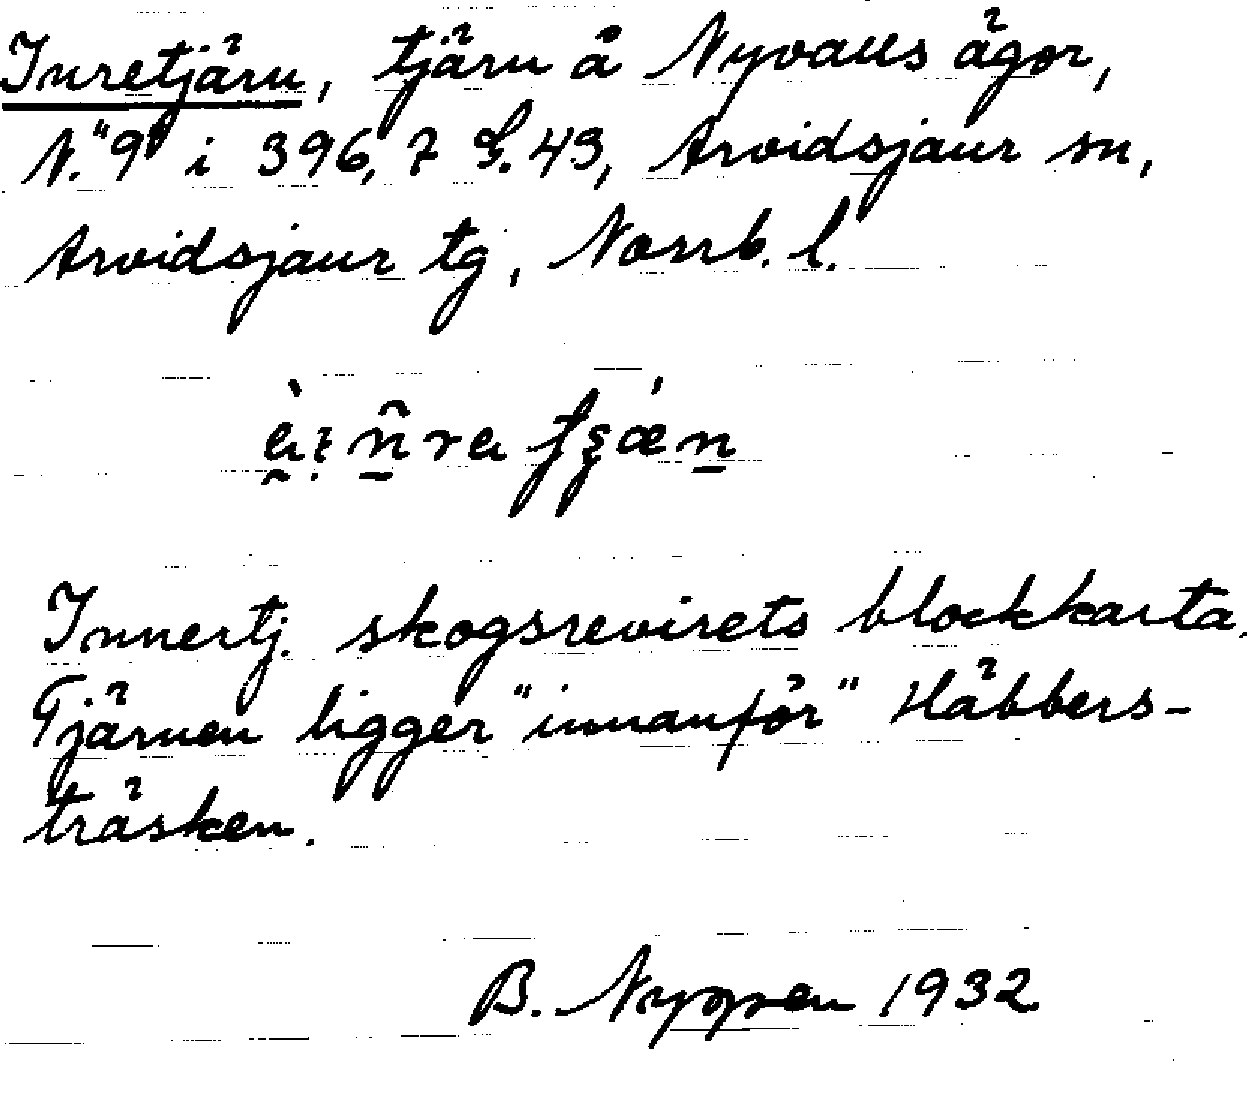 Inretjärn, tjärn å Nyvalls ägor,
N."9" i 396, 7 S. 43, Arvidsjaur sn,
Arvidsjaur tg, Norrb. l.
Innertj. skogsrevirets blockkarta.
Tjärnen ligger "innanför" Häbbers-
träsken.
B. Nygren 1932